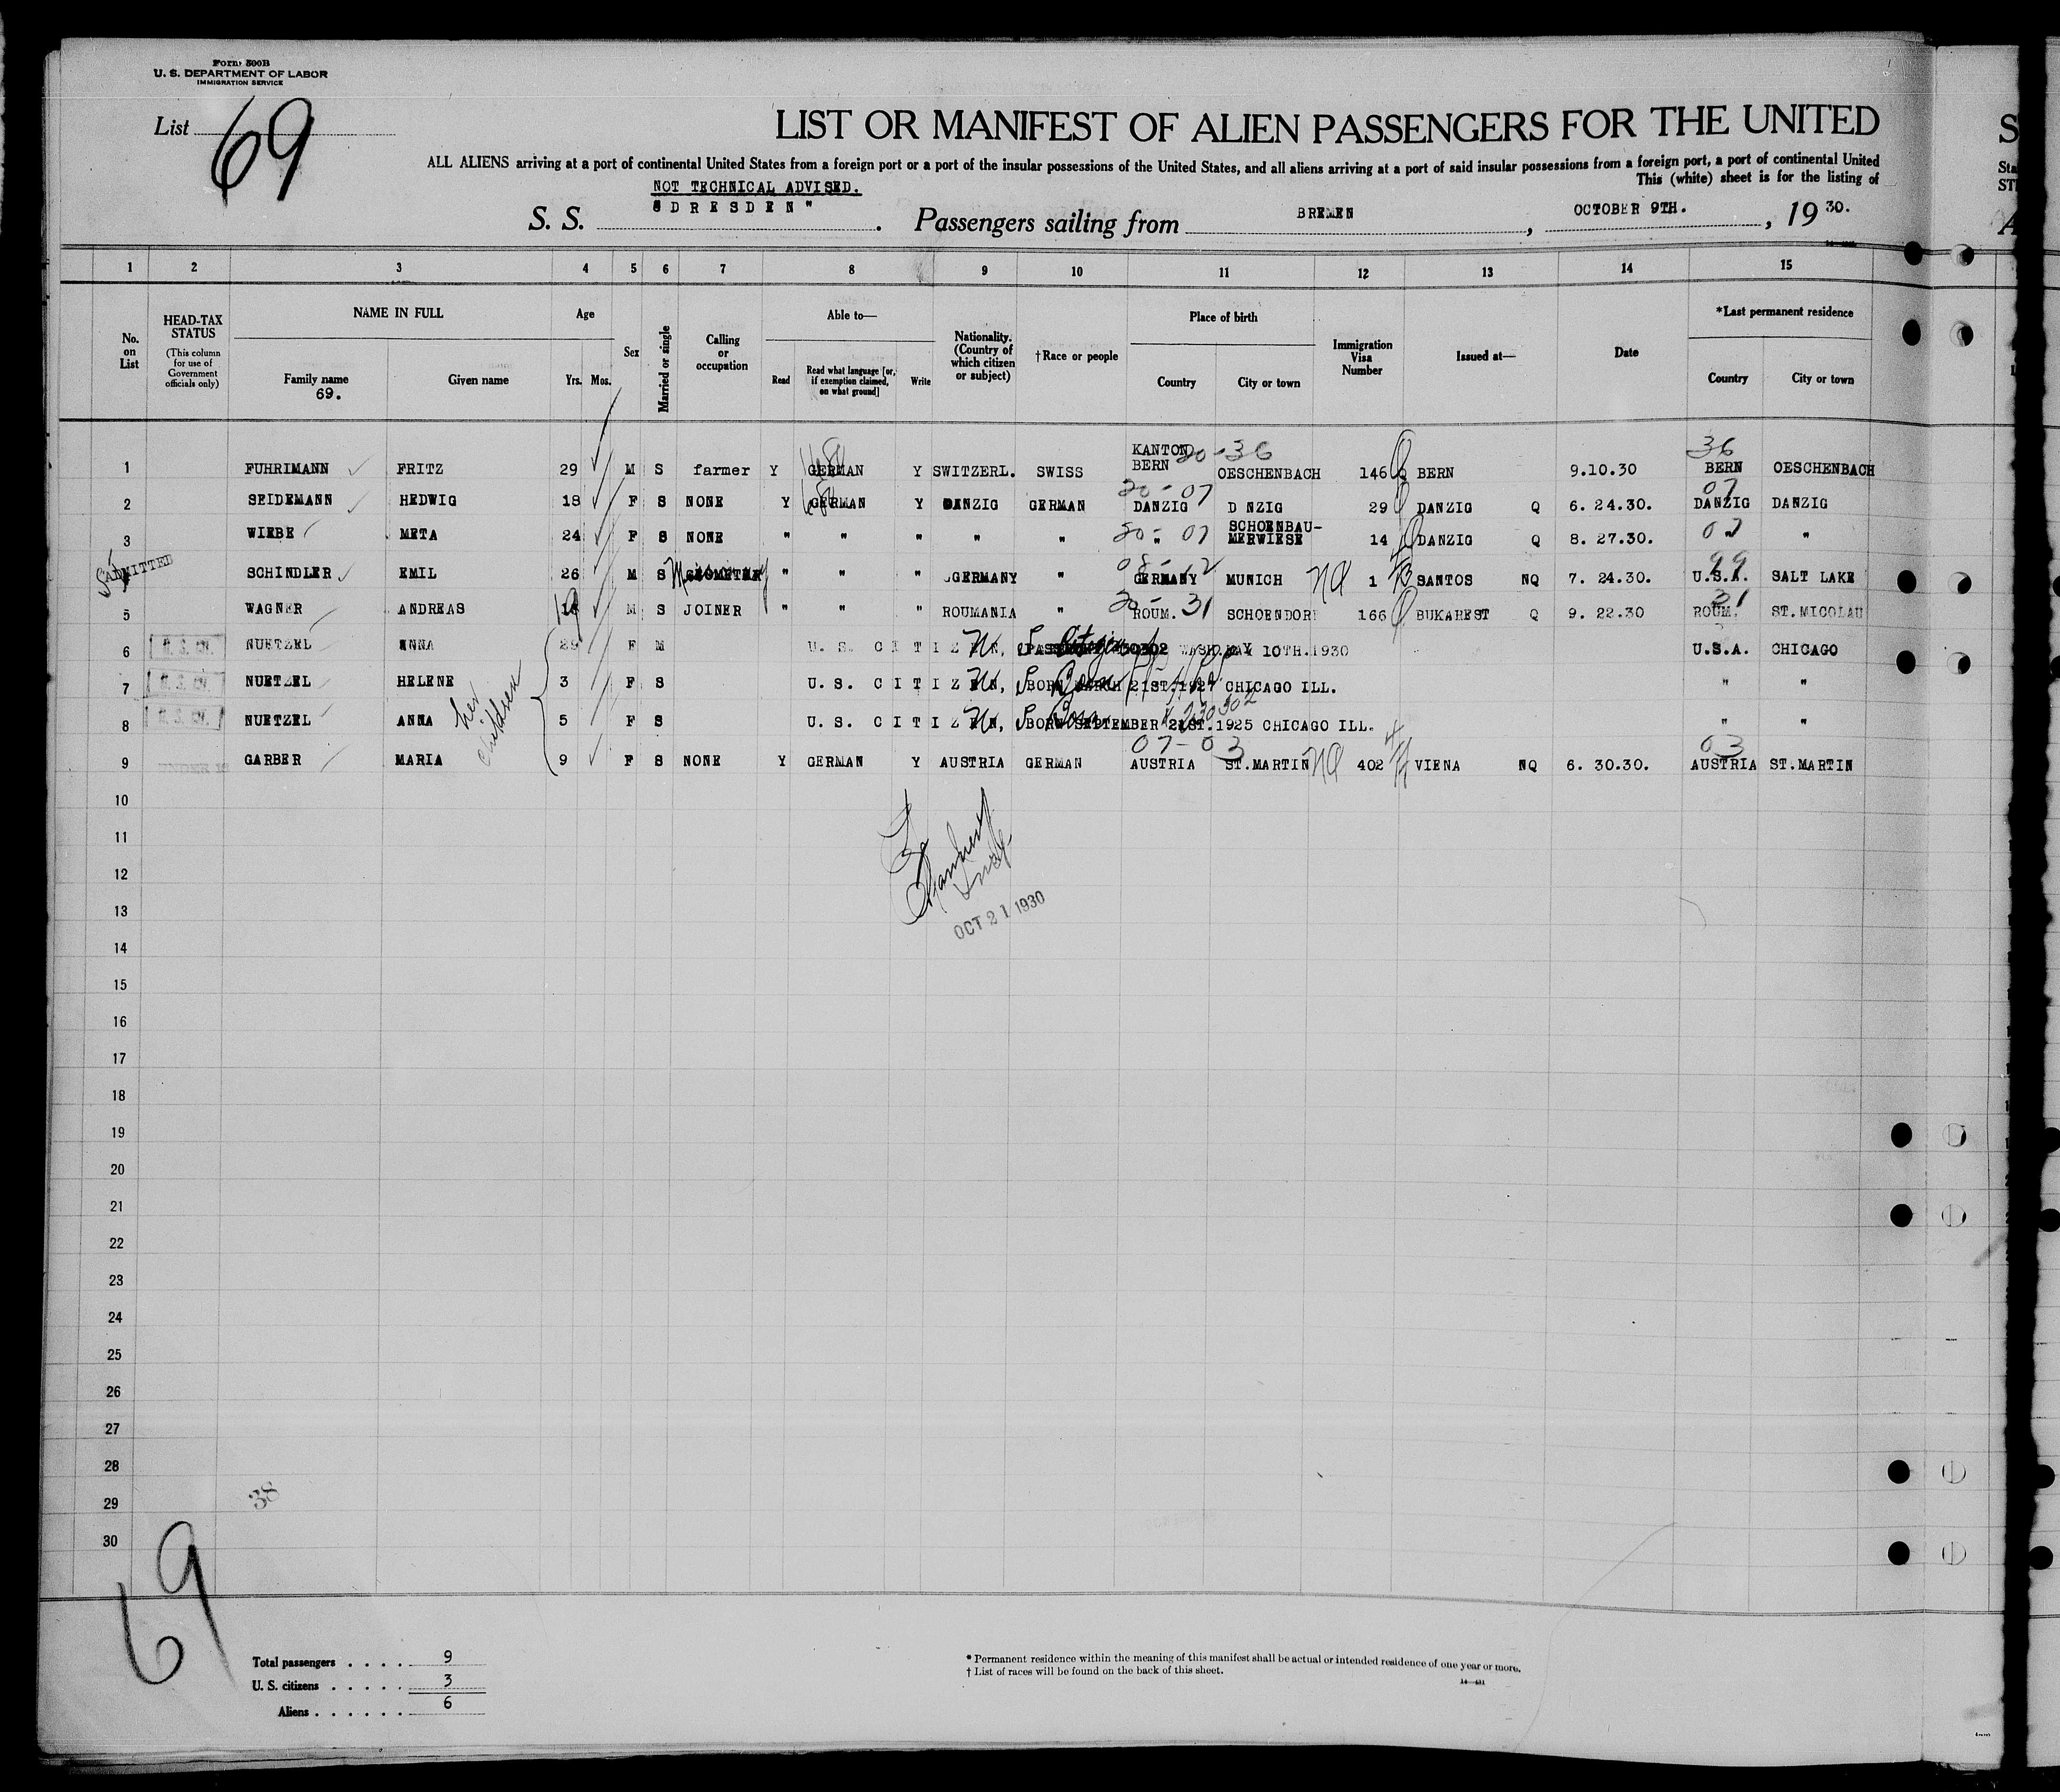 Form 500B
U. S. DEPARTMENT OF LABOR
IMMIGRATION SERVICE
List 69
LIST OR MANIFEST OF ALIEN PASSENGERS FOR THE UNITED
ALL ALIENS arriving at a port of continental United States from a foreign port or a port of the insular possessions of the United States, and all aliens arriving at a port of said insular possessions from a foreign port, a port of continental United
This (white) sheet is for the listing of
NOT TECHNICAL ADVISED.
S. S. "DRESDEN". Passengers sailing from BREMEN, OCTOBER 9TH., 19 30.
1 2 3 4 5 6 7 8 9 10 11 12 13 14 15
No. on List
HEAD-TAX STATUS
(This column for use of Government officials only)
NAME IN FULL
Family name
69.
Given name
Age
Yrs. Mos.
Sex
Married or single
Calling or occupation
Able to—
Read
Read what language [or, if exemption claimed, on what ground]
Write
Nationality. (Country of which citizen or subject)
†Race or people
Place of birth
Country
City or town
Immigration Visa Number
Issued at—
Date
*Last permanent residence
Country
City or town
20-36 36
1 FUHRIMANN FRITZ 29 M S farmer Y GERMAN Y SWITZERL. SWISS KANTON BERN OESCHENBACH 146 Q BERN 9.10.30 BERN OESCHENBACH
20-07 07
2 SEIDEMANN HEDWIG 18 F S NONE Y GERMAN Y DANZIG GERMAN DANZIG D NZIG 29 DANZIG Q 6. 24.30. DANZIG DANZIG
20-07 07
3 WIEBE META 24 F S NONE " " " " " " SCHOENBAU-MERWIESE 14 DANZIG Q 8. 27.30. " "
ADMITTED
08-12 99
SCHINDLER EMIL 26 M S " " " GERMANY " GERMANY MUNICH NQ 1 SANTOS NQ 7. 24.30. U.S.A. SALT LAKE
20-31 31
5 WAGNER ANDREAS 19 M S JOINER " " " ROUMANIA " ROUM. SCHOENDORF 166 BUKAREST Q 9. 22.30 ROUM. ST.NICOLAU
6 U. S. CN. NUETZEL ANNA 29 F M U. S. CITIZEN, WASH.MAY 10TH.1930 U.S.A. CHICAGO
7 U. S. CN. NUETZEL HELENE 3 F S U. S. CITIZEN, BORN MARCH 21ST.1927 CHICAGO ILL. " "
her children
8 U. S. CN. NUETZEL ANNA 5 F S U. S. CITIZEN, BORN SEPTEMBER 21ST.1925 CHICAGO ILL. " "
230302
07-03 03
9 UNDER 16 GARBER MARIA 9 F S NONE Y GERMAN Y AUSTRIA GERMAN AUSTRIA ST.MARTIN NQ 402 VIENA NQ 6. 30.30. AUSTRIA ST.MARTIN
10
11
12
13
OCT 21 1930
14
15
16
17
18
19
20
21
22
23
24
25
26
27
28
29
38
30
69
Total passengers . . . . 9
U. S. citizens . . . . . 3
Aliens . . . . . . 6
* Permanent residence within the meaning of this manifest shall be actual or intended residence of one year or more.
† List of races will be found on the back of this sheet.